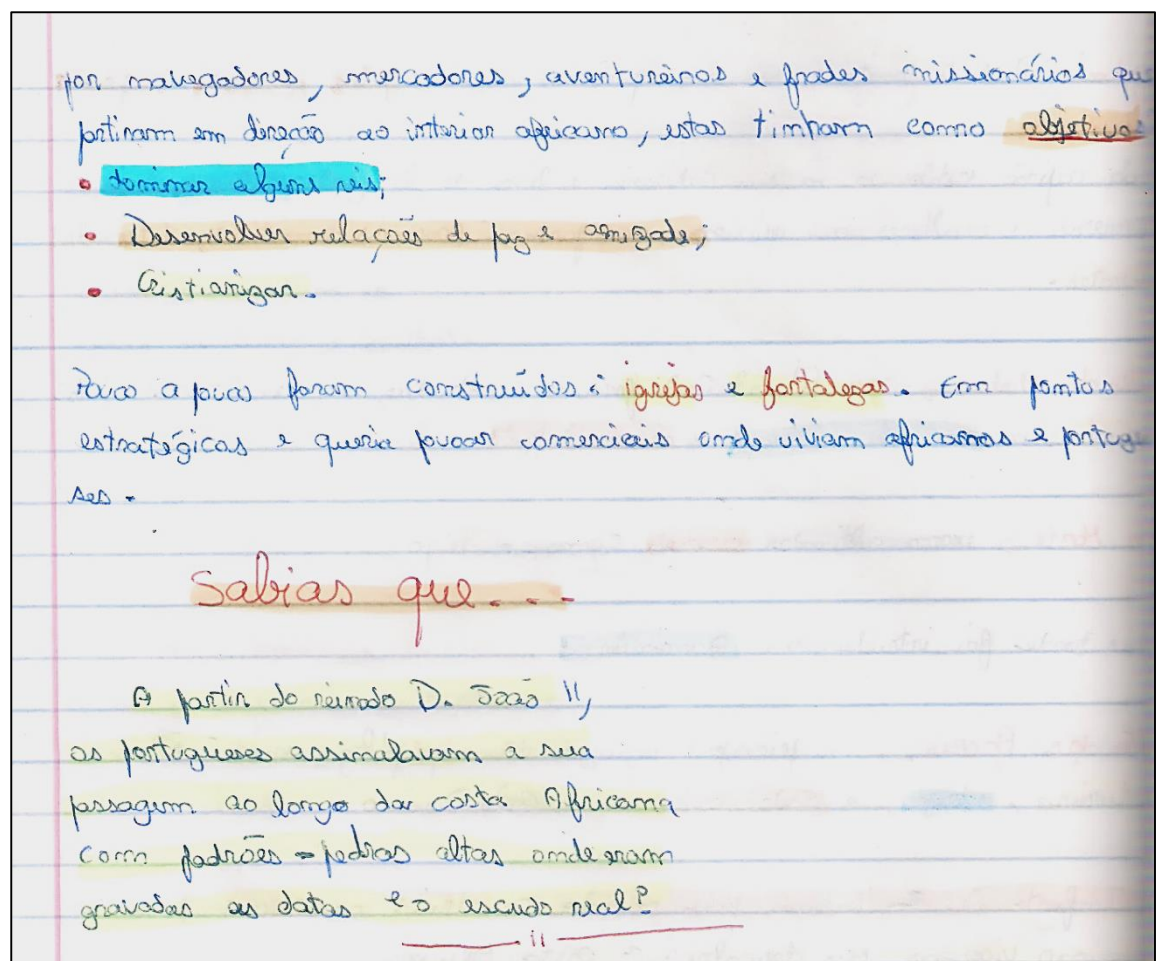 por navegadores, mercadores, aventureiros e frades missionários que
partiram em direção ao interior africano, estas tinham como objetivos
• dominar alguns reis;
• Desenvolver relações de paz e amizade;
• Cristianizar.
Pouco a pouco foram construídos: igrejas e fortalezas. Em pontos
estratégicos e povoar comerciais onde viviam africanos e portugue
ses.
Sabias que...
A partir do reinado D. João II,
os portugueses assinalavam a sua
passagem ao longo da costa Africana
com padrões - pedras altas onde eram
gravadas as datas e o escudo real?